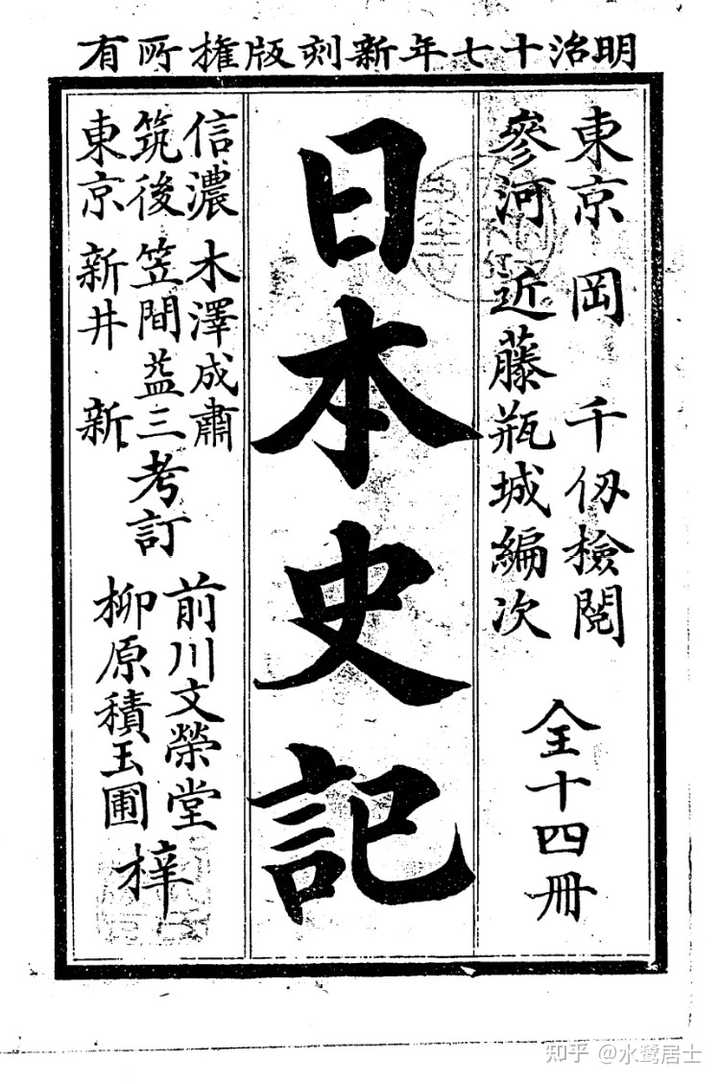 明治十七年新刻版権所有
東京 岡 千仭檢閲
參河 近藤瓶城編次
全十四冊
日本史記
信濃 木澤成肅
筑後 笠間益三
東京 新井 新
考訂
前川文榮堂
柳原積玉圃
梓
知乎 @水鹭居士